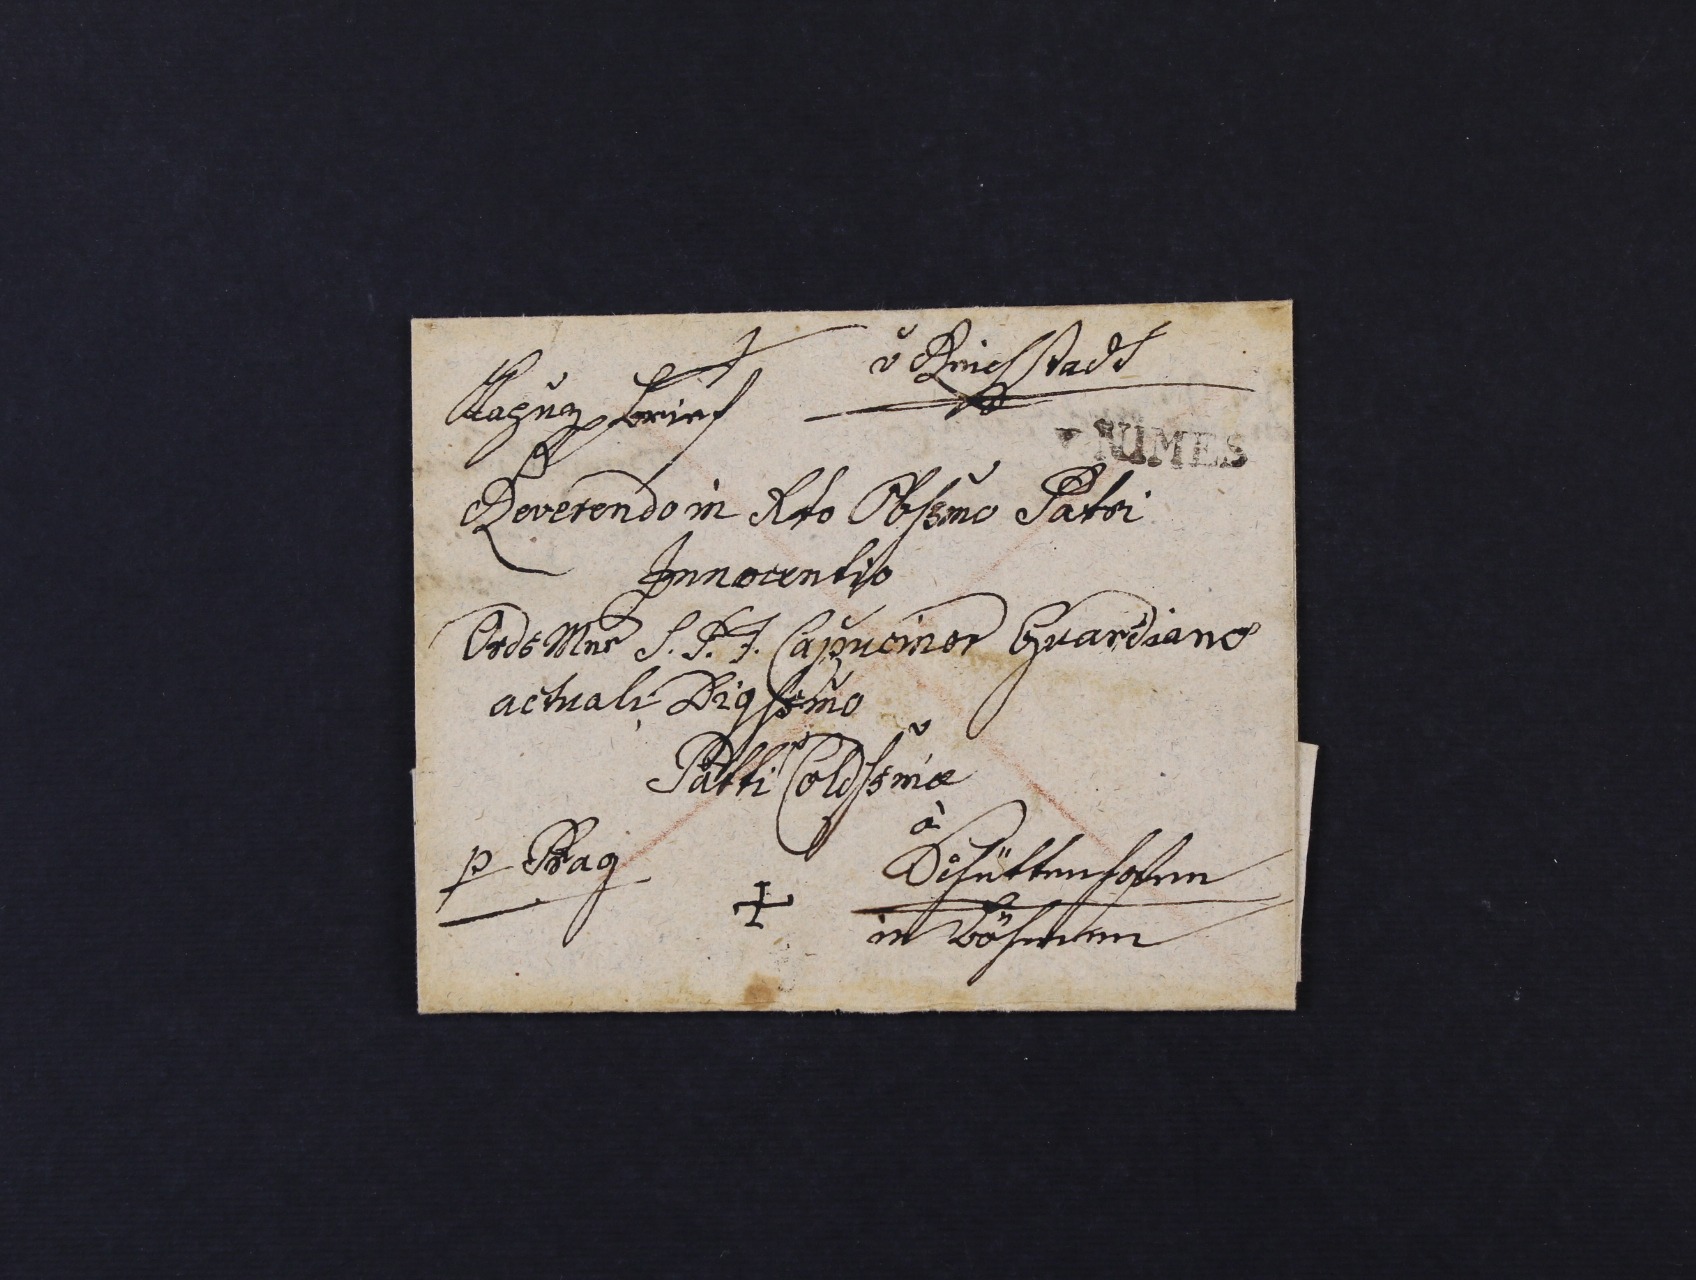 Kapuz. brief v Reichstadt
v NIMES
Reverendo in Xto Obssmo Patri
Innocentio
Ords Mnr S. P. F. Capucinor Guardiano
actuali Digssmo
Patri Coldssmo
à
p Prag Schüttenhofen
in Böhmen